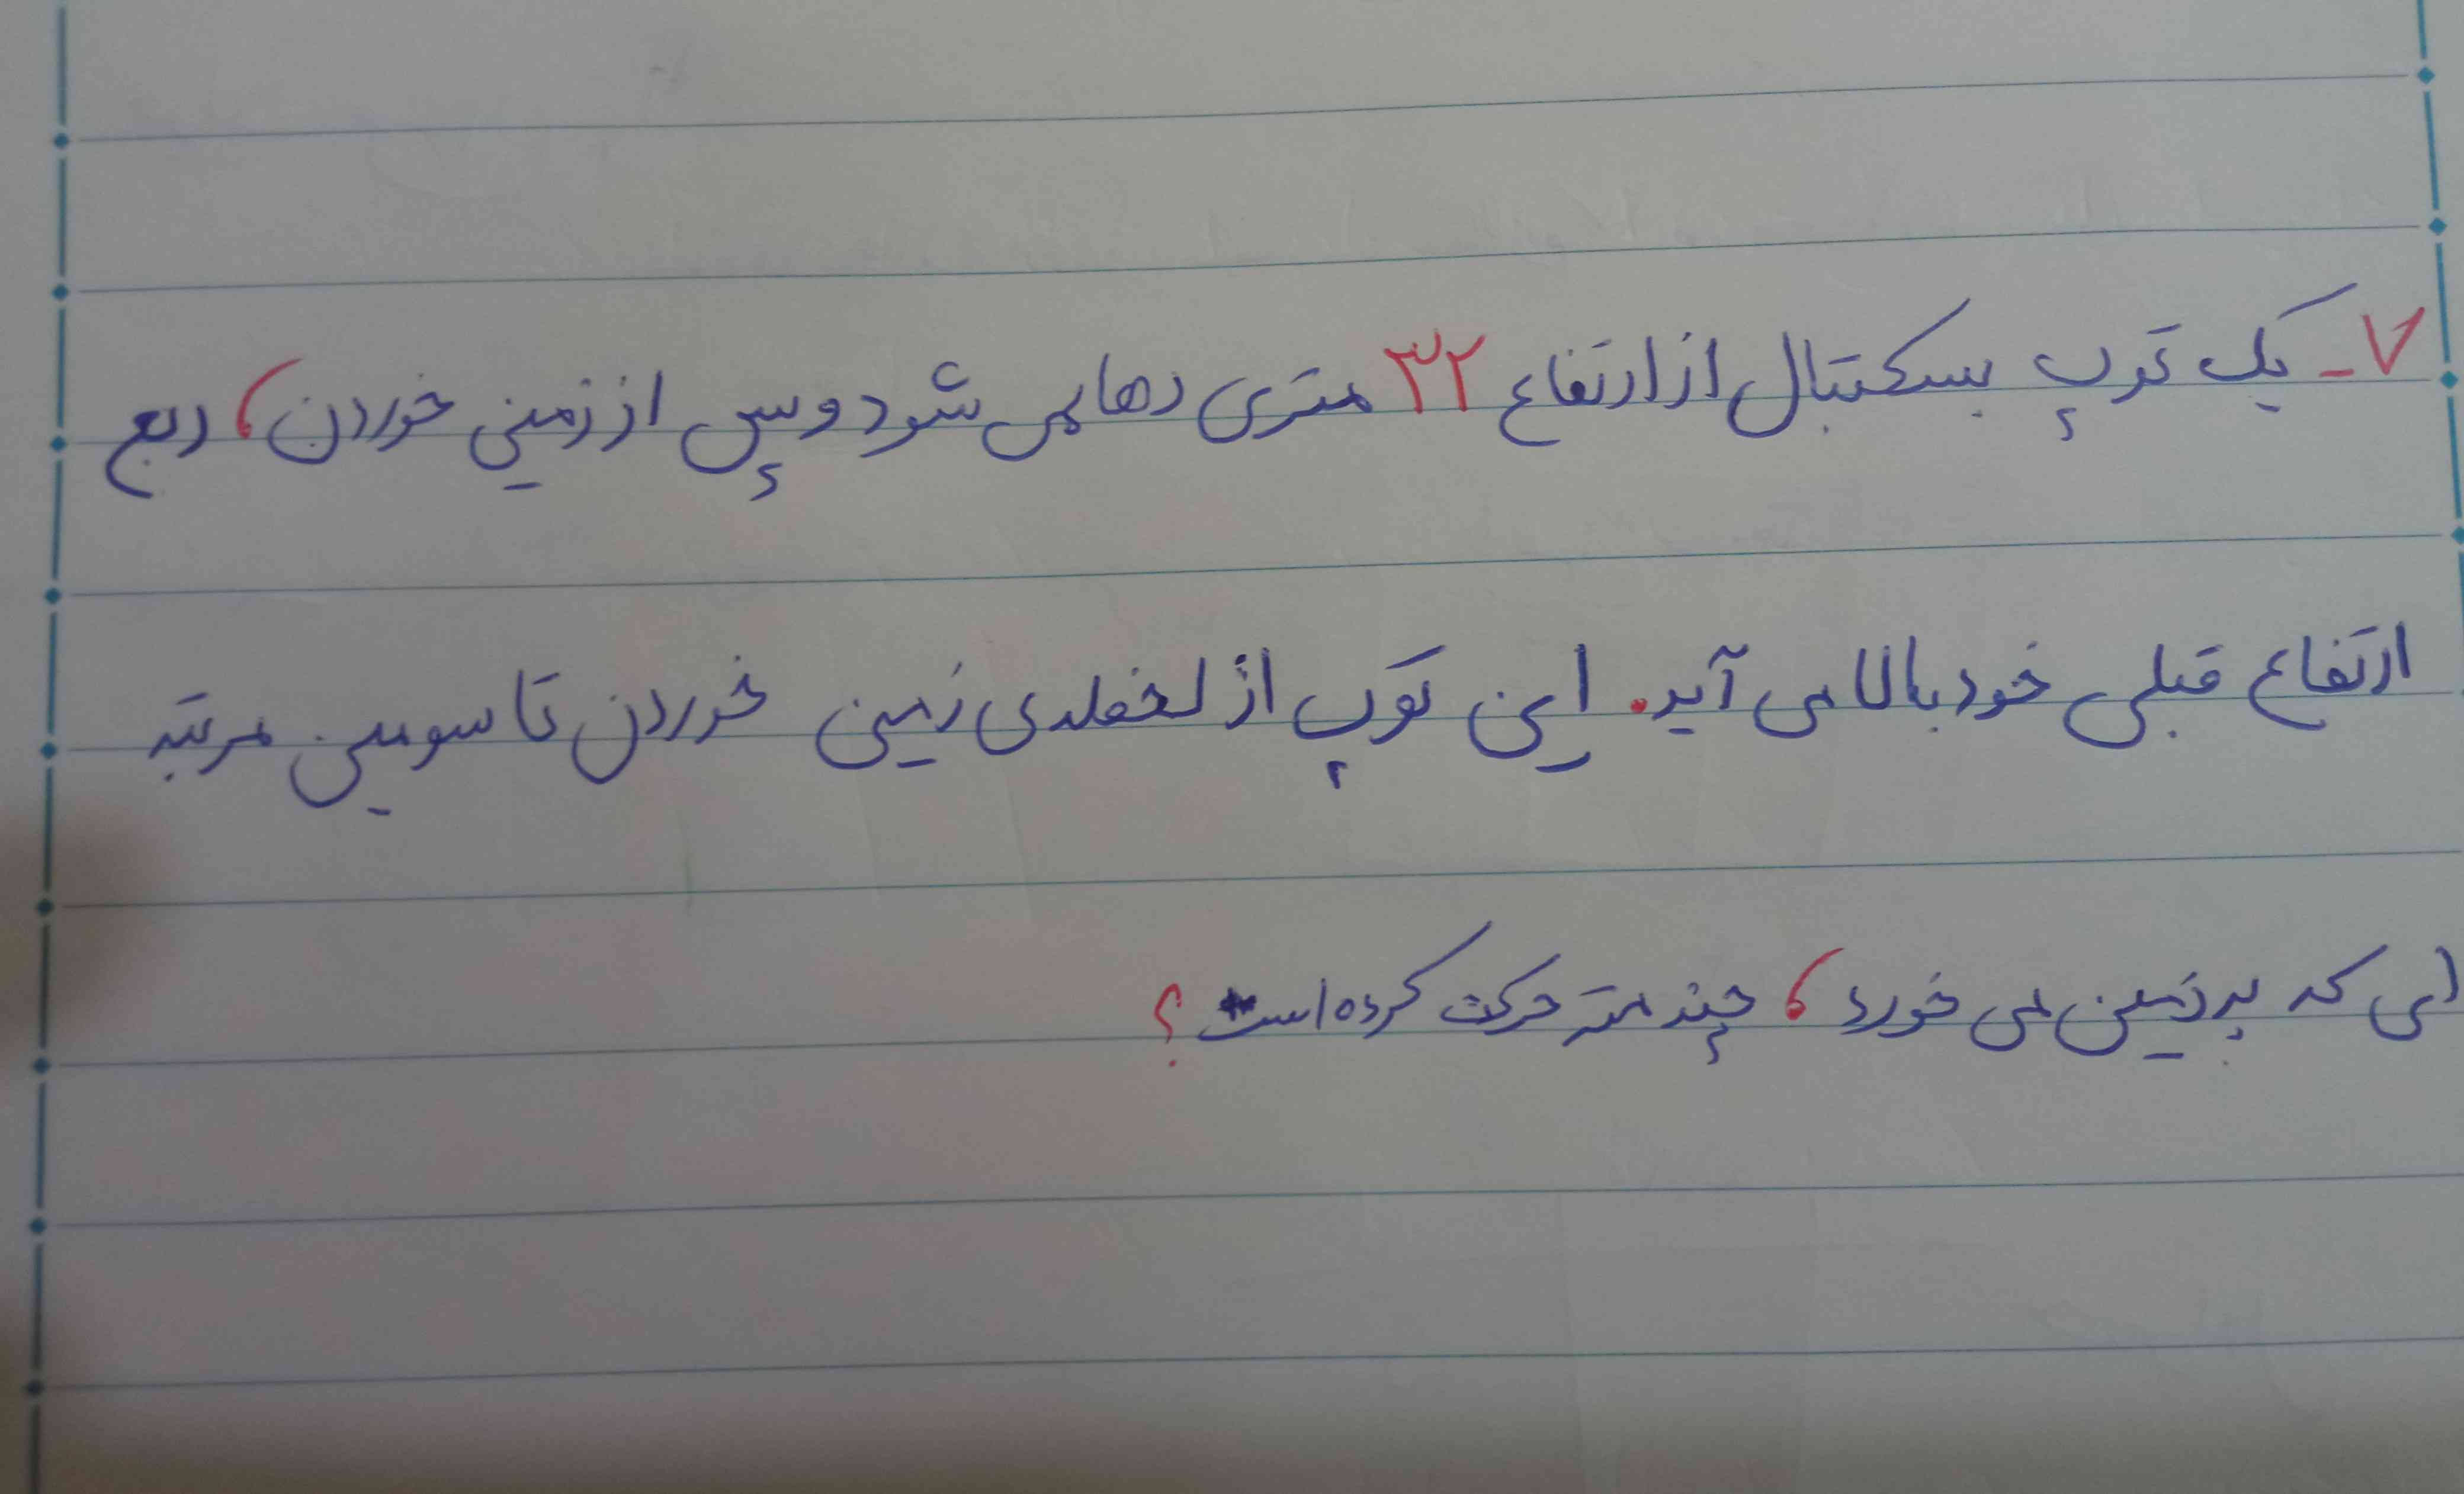 ۷- یک توپ بسکتبال از ارتفاع ۳۲ متری رها می شود و پس از زمین خوردن، ربع
ارتفاع قبلی خود بالا می آید. این توپ از لحظه‌ی زمین خوردن تا سومین مرتبه
ای که به زمین می خورد، چند متر حرکت کرده است؟